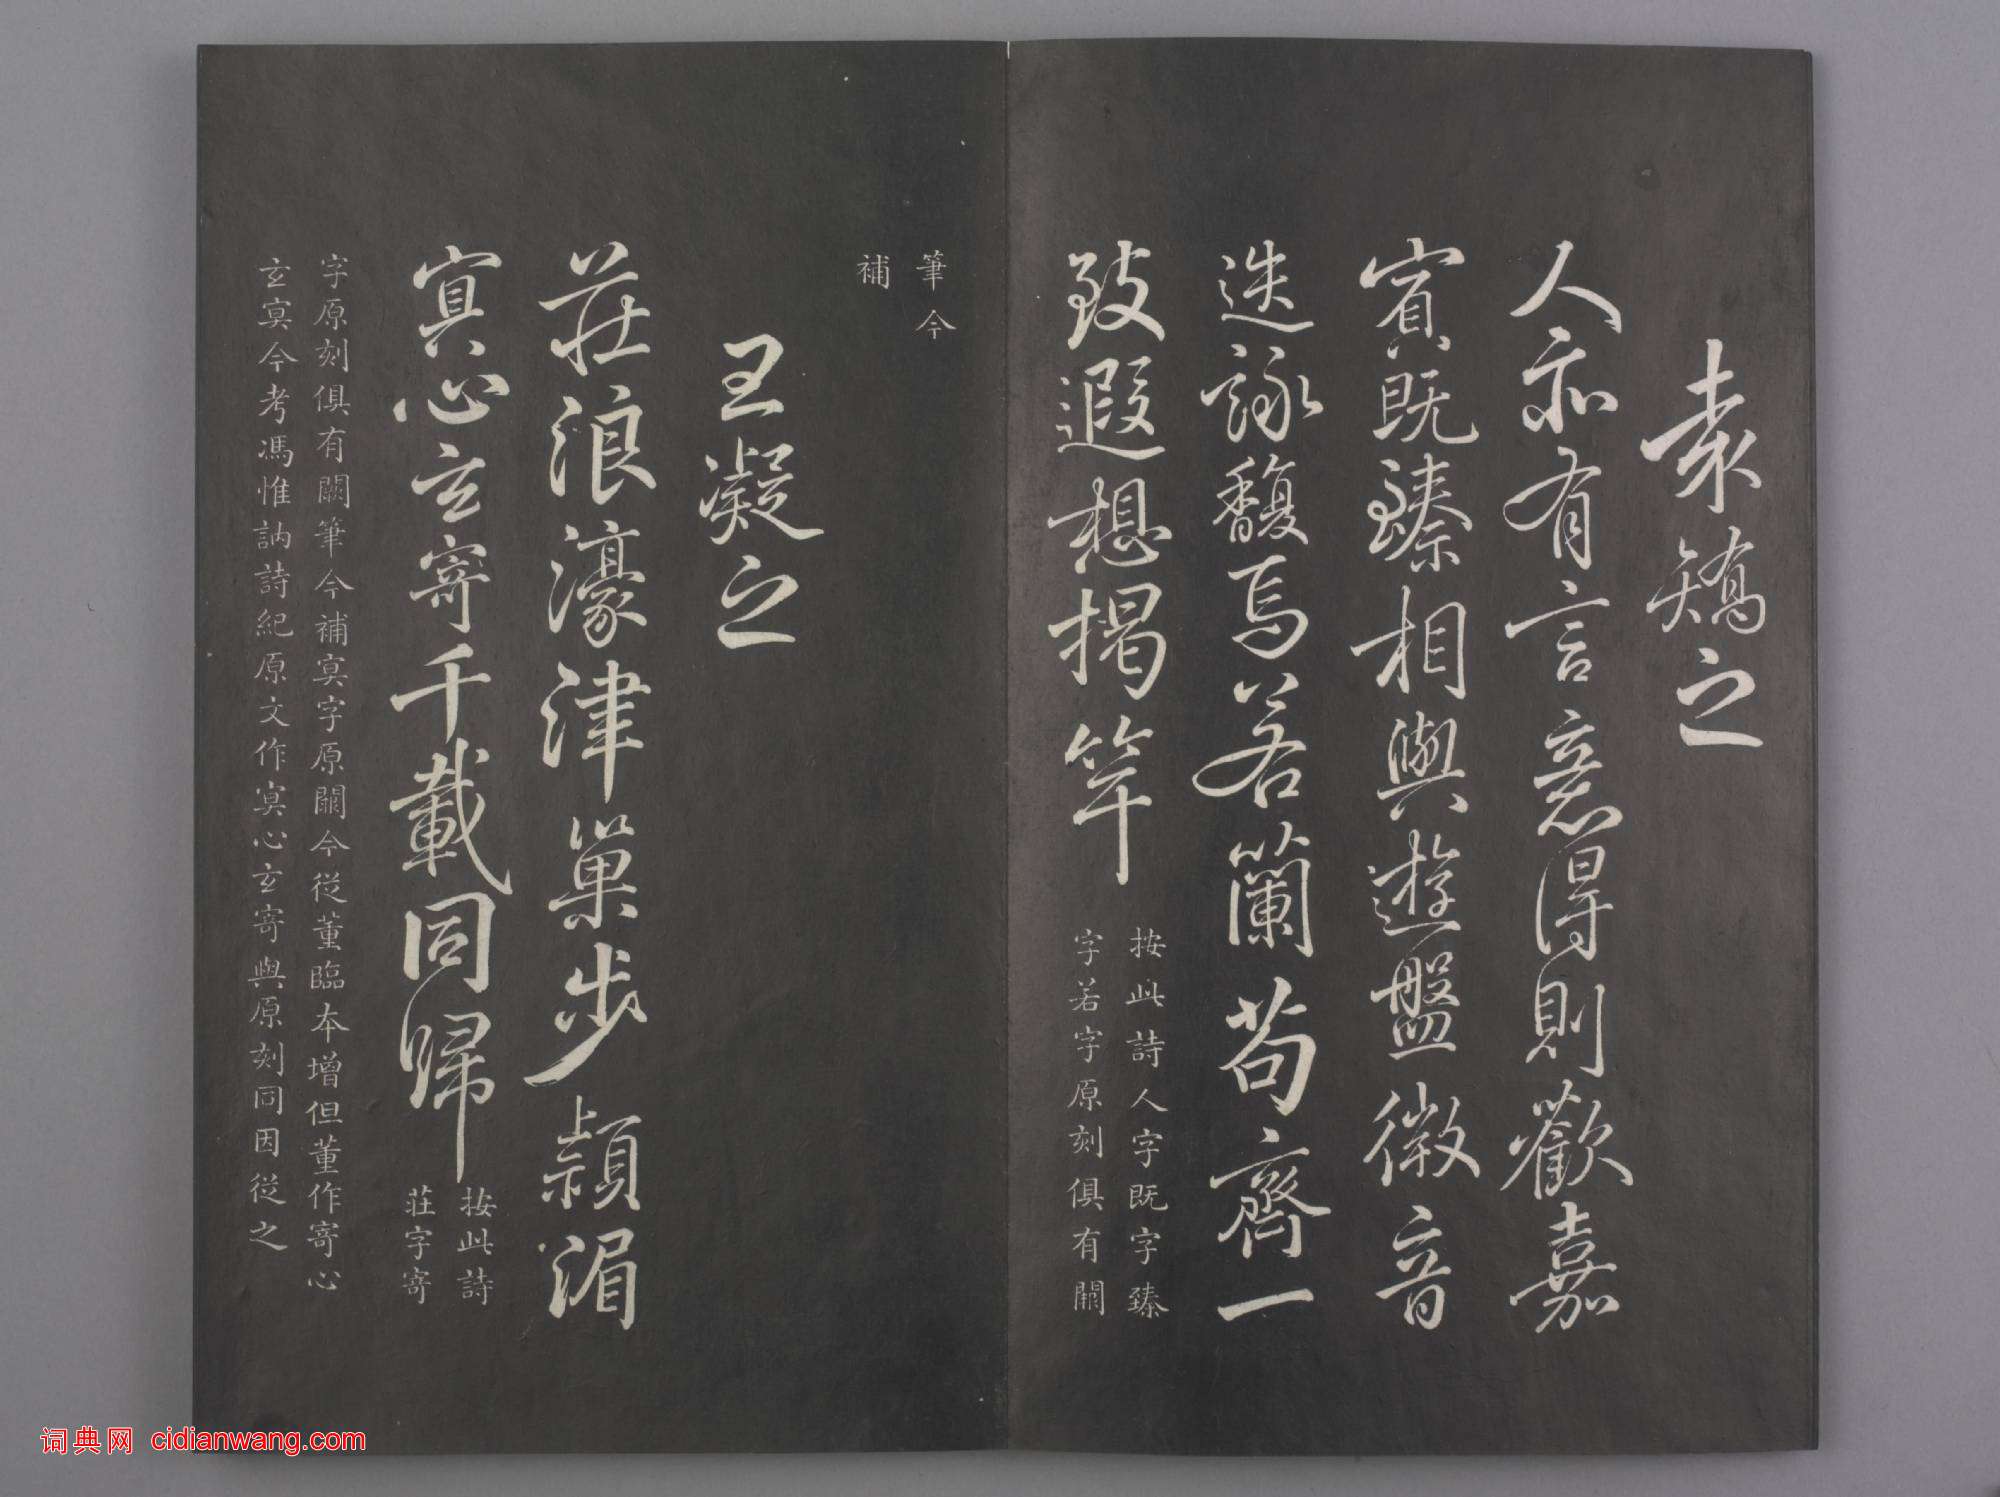 袁矯之
人亦有言意得則歡嘉
賓既臻相與遊盤微音
迭詠馥焉若蘭苟齊一
致遐想揭竿
按此詩人字既字臻
字若字原刻俱有闕
筆今
補
王凝之
莊浪濠津巢步潁湄
冥心玄寄千載同歸
按此詩
莊字寄
字原刻俱有闕筆今補冥字原闕今從董臨本增但董作寄心
玄冥今考馮惟訥詩紀原文作冥心玄寄與原刻同因從之
词典网 cidianwang.com